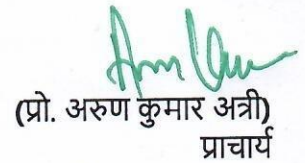 (प्रो. अरुण कुमार अत्री)
प्राचार्य